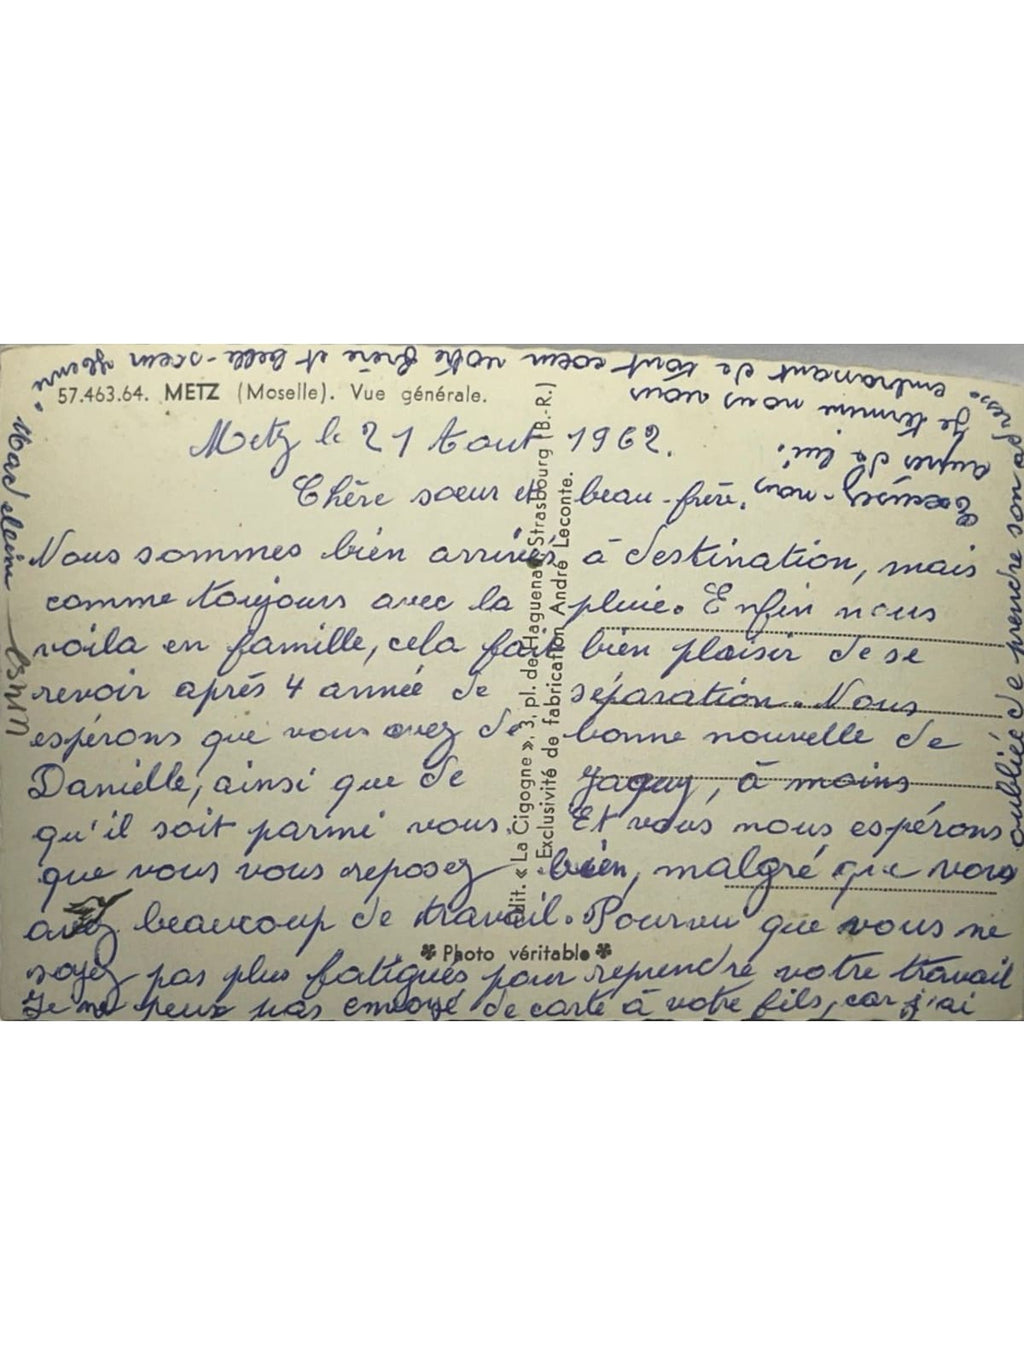 57.463.64. METZ (Moselle). Vue générale.
Metz le 21 Aout 1962.
Chère sœur et beau-frère.
Nous sommes bien arrivés à destination, mais
comme toujours avec la pluie. Enfin nous
voila en famille, cela fait bien plaisir de se
revoir aprés 4 année de séparation. Nous
espérons que vous avez de bonne nouvelle de
Danielle, ainsi que de Jaquy, à moins
qu'il soit parmi vous. Et vous nous espérons
que vous vous reposez bien, malgré que vous
avez beaucoup de travail. Pourvu que vous ne
soyez pas plus fatigués pour reprendre votre travail
Je ne peux pas envoyé de carte à votre fils, car j'ai
oubliée de prendre son adresse.
Excusez-nous
aupres de lui.
Je termine nous vous
embrassant de tout coeur votre frère et belle-sœur
Madeleine
édit. « La Cigogne », 3, pl. de Haguenau, Strasbourg (B.-R.)
Exclusivité de fabrication André Leconte.
Photo véritable